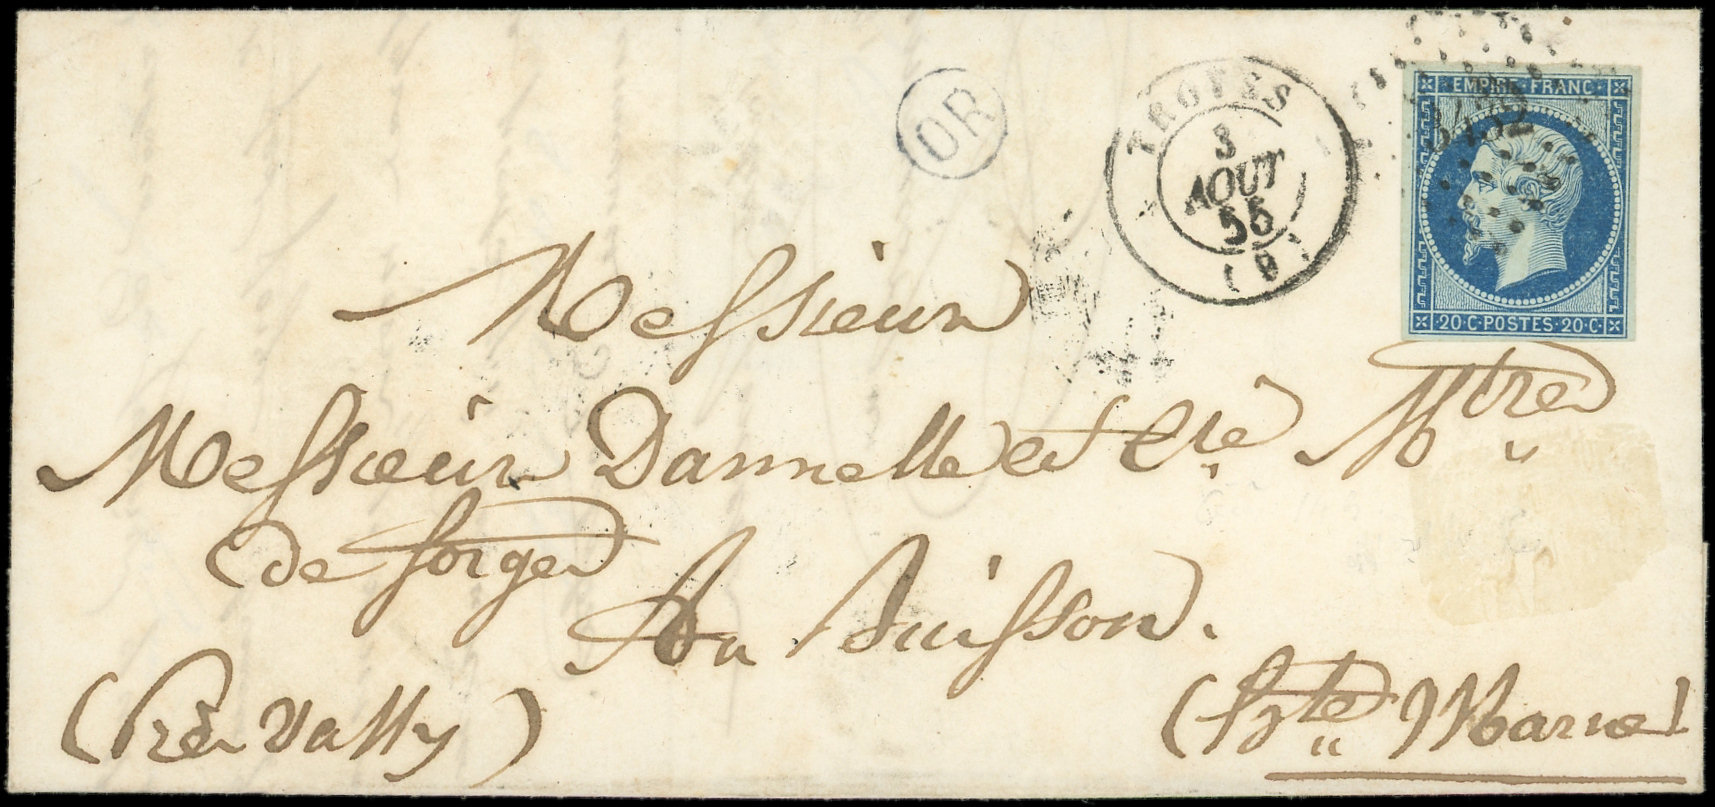 OR
TROYES
3
AOUT
55
(9)
EMPIRE FRANC
3432
20·C·POSTES·20·C·
Messieur
Messieur Dannelle et Cie Mtre
de forges
Au Buisson.
(Près Vassy)
(Hte Marne)